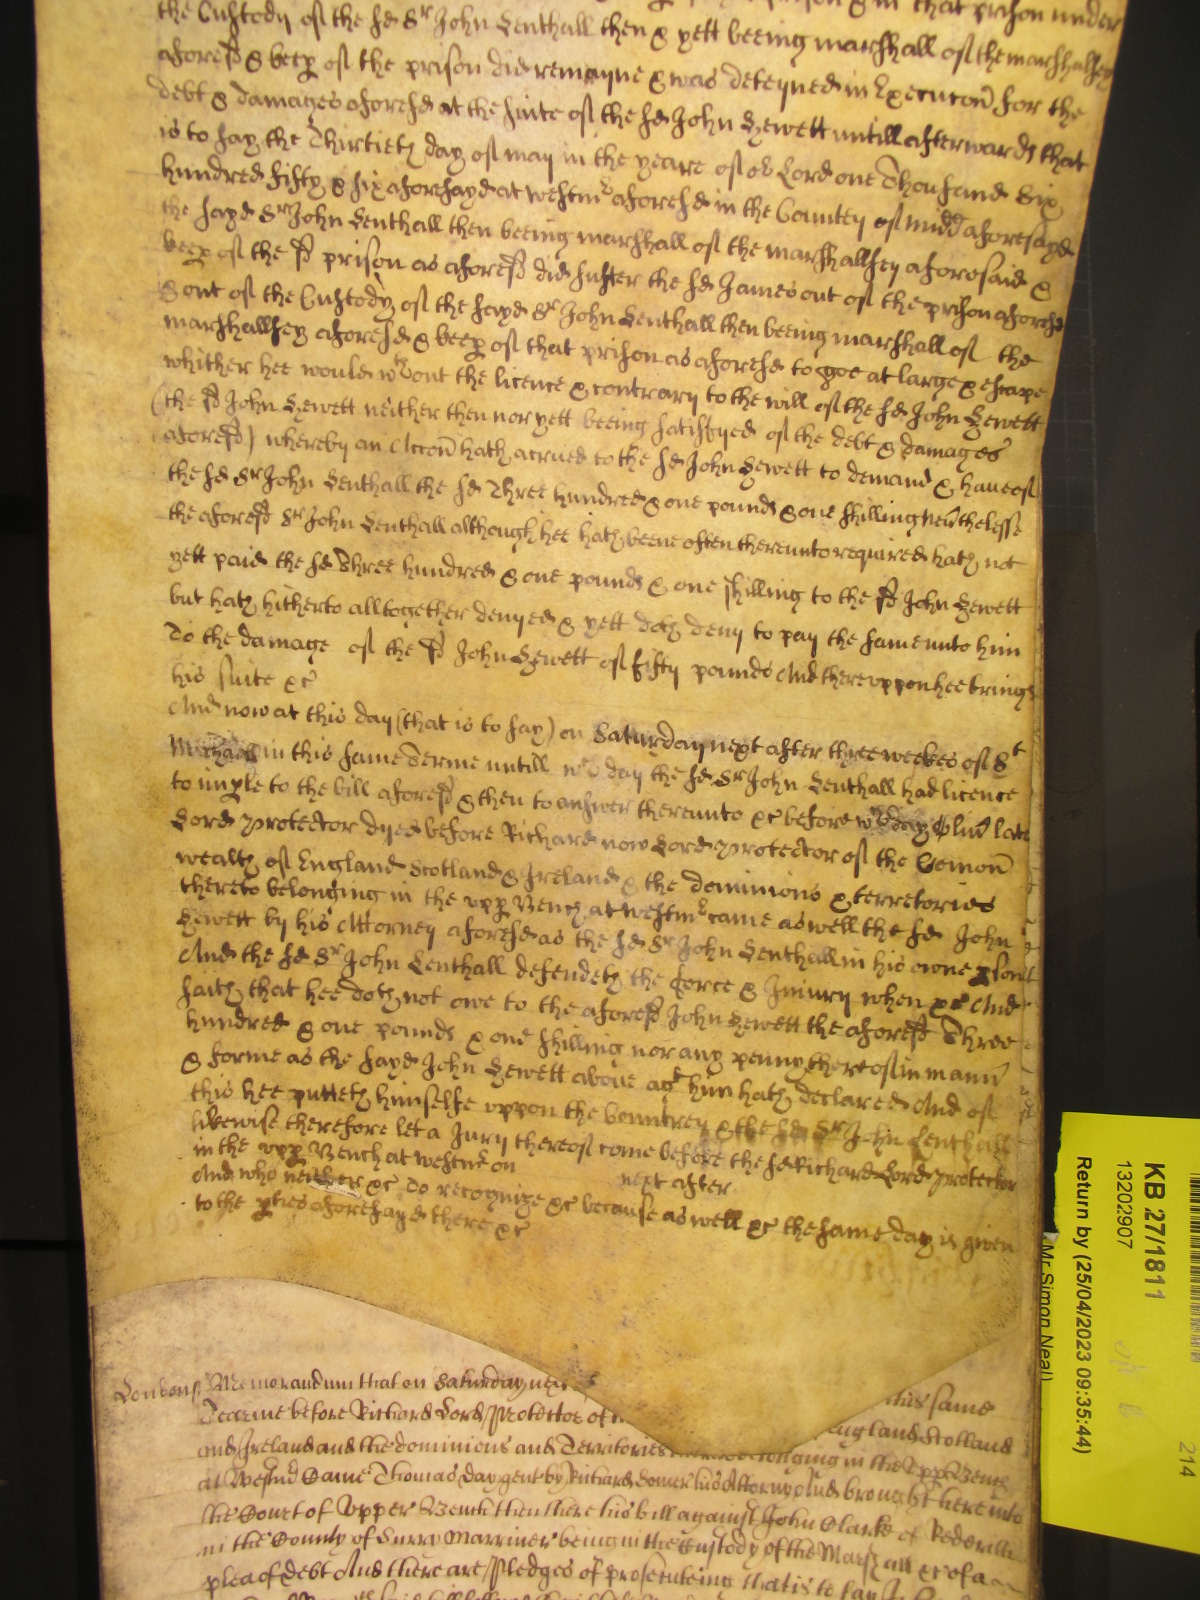 prison & in that prison under
the Custody of the sd Sr John Lenthall then & yett beeing marshall of the marshallsey
aforesd & keep of the prison did remayne & was deteyned in Execucon for the
debt & damages aforesd at the suite of the sd John Hewett untill afterwards that
is to say the Thirtieth day of may in the yeare of or Lord one Thousand Six
hundred fifty & six aforesayd at westmr aforesd in the County of midd aforesayd
the sayd Sr John Lenthall then beeing marshall of the marshallsey aforesaid &
keep of the sd prison as aforesd did suffer the sd James out of the prison aforesd
& out of the Custody of the sayd Sr John Lenthall then beeing marshall of the
marshallsey aforesd & keep of that prison as aforesd to goe at large & escape
whither hee would wthout the licence & contrary to the will of the sd John Hewett
(the sd John Hewett neither then nor yett beeing satisfyed of the debt & damages
aforesd) whereby an Accon hath accrued to the sd John Hewett to demand & have of
the sd Sr John Lenthall the sd Three hundred & one pounds & one shilling nevthelesse
the aforesd Sr John Lenthall although hee hath beene often thereunto required hath not
yett paid the sd Three hundred & one pounds & one shilling to the sd John Hewett
but hath hitherto alltogether denyed & yett doth deny to pay the same unto him
To the damage of the sd John Hewett of fifty pounds And thereuppon hee brings
his suite &c
And now at this day (that is to say) on Saturday next after three weekes of St
Michael in this same Terme untill wch day the sd Sr John Lenthall had licence
to imple to the bill aforesd & then to answer thereunto &c before wch day Oliv late
Lord Protector dyed before Richard now Lord Protector of the Comon
wealth of England Scotland & Ireland & the dominions & territories
thereto belonging in the upp Bench at westmr came aswell the sd John
Hewett by his Attorney aforesd as the sd Sr John Lenthall in his owne pson
And the sd Sr John Lenthall defendeth the force & Iniury when &c And
saith that hee doth not owe to the aforesd John Hewett the aforesd Three
hundred & one pounds & one shilling nor any penny thereof in mann
& forme as the sayd John Hewett above agt him hath declared And of
this hee putteth himselfe uppon the Countrey & the sd Sr John Lenthall
likewise therefore let a Jury thereof come before the sd Richard Lord Protector
in the upp Bench at westmr on next after
And who neither &c To recognize &c because aswell &c the same day is given
to the pties aforesayd there &c
London s Memorandum that on Saturday next this same
Terme before Richard Lord Protector of England Scotland
and Ireland and the dominions and Territories belonging in the Upp Bench
at Westmr Came Thomas day gent by Richard his Attorny And brought here into
the Court of Upper Bench then there his bill against John Clarke of Rederiffe
in the County of Surry Marriner being in the Custody of the Marshall &c of a
plea of debt And there are Pledges of prosecuteing that is to say
KB 27/1811
13202907
Return by (25/04/2023 09:35:44)
Mr Simon Neal
214